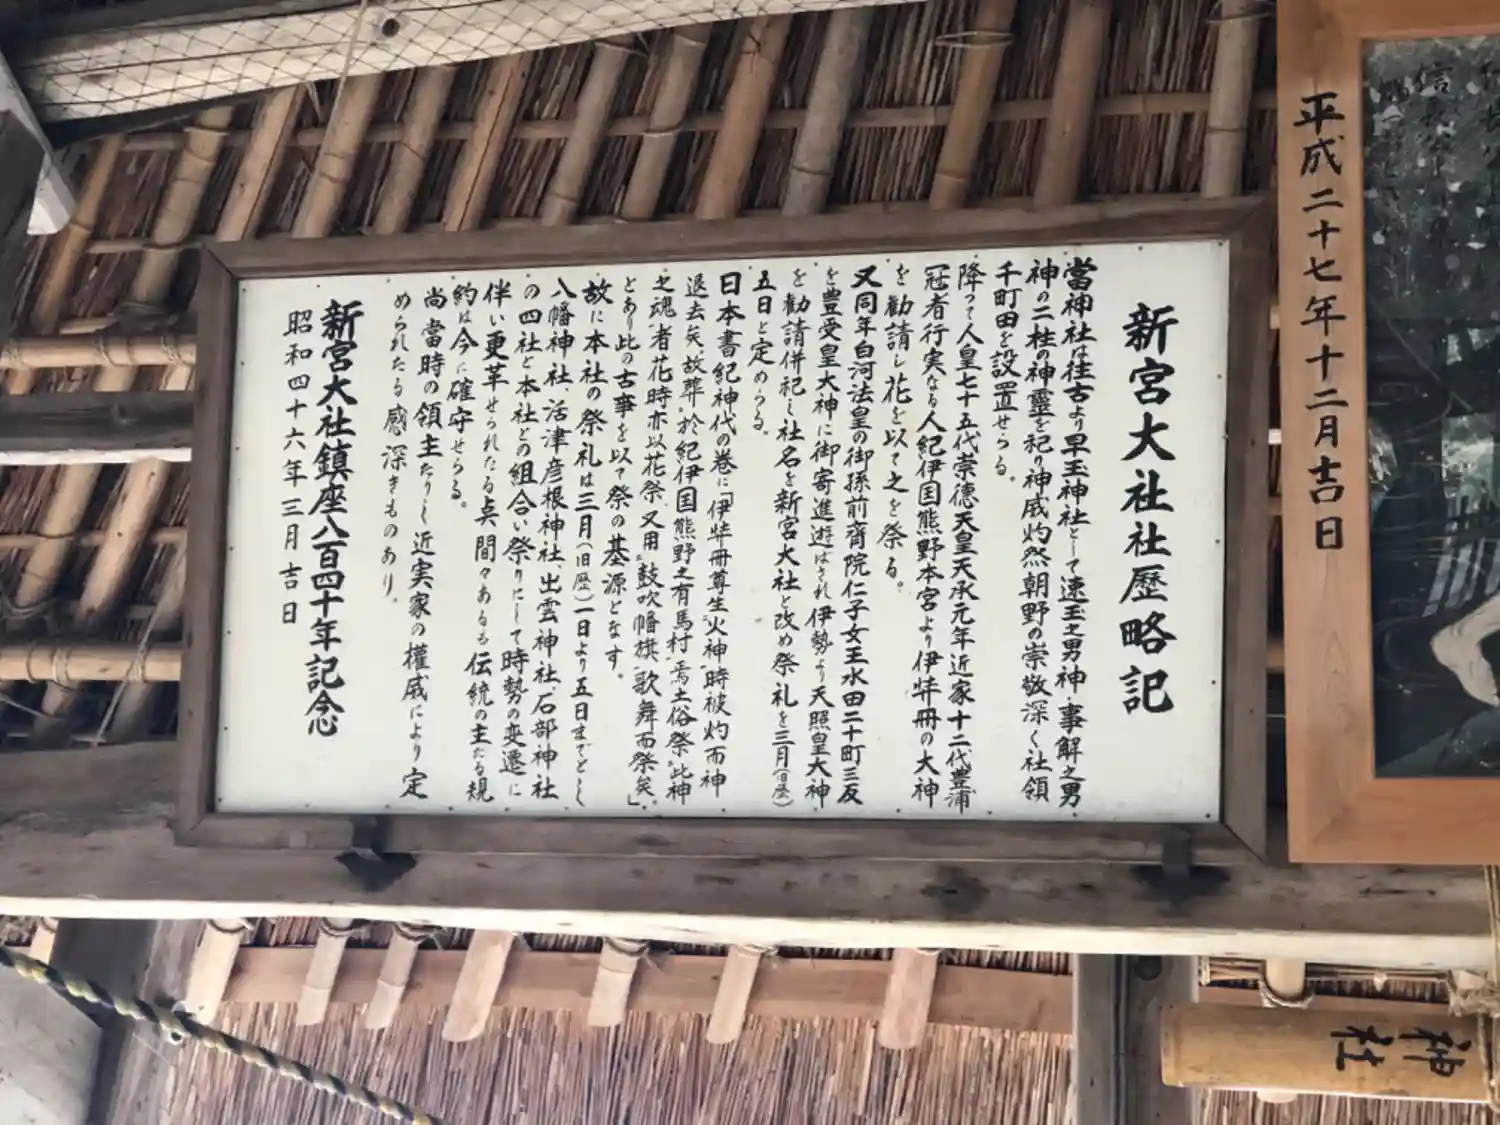 新宮大社社歴略記
當神社は往古より早玉神社として速玉之男神・事解之男
神の二柱の神霊を祀り神威灼然朝野の崇敬深く社領
千町田を設置せらる。
降って人皇七十五代崇徳天皇天承元年近家十二代豊浦
冠者行実なる人紀伊国熊野本宮より伊弉冊の大神
を勧請し花を以て之を祭る。
又同年白河法皇の御孫前齋院仁子女王水田二十町三反
を豊受皇大神に御寄進遊はされ伊勢より天照皇大神
を勧請併祀し社名を新宮大社と改め祭礼を三月(旧歴)
五日と定めらる。
日本書紀神代の巻に「伊弉冊尊生火神時被灼而神
退去矣故葬於紀伊国熊野之有馬村焉土俗祭此神
之魂者花時亦以花祭又用鼓吹幡旗歌舞而祭矣」
とあり此の古事を以て祭の基源となす。
故に本社の祭礼は三月(旧歴)一日より五日までとし
八幡神社、活津彦根神社、出雲神社、石部神社
の四社と本社との組合い祭りにして時勢の変遷に
伴い更革せられたる点間々あるも伝統の主たる規
約は今に確守せらる。
尚當時の領主たりし近実家の權威により定
められたる感深きものあり。
新宮大社鎮座八百四十年記念
昭和四十六年三月吉日
平成二十七年十二月吉日
神社